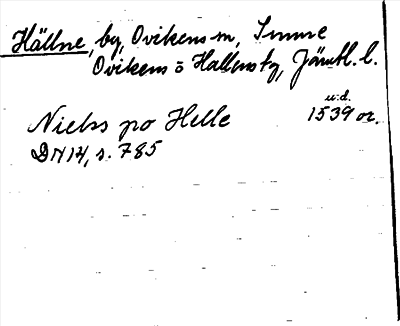 Hällne, by, Ovikens sn,
Ovikens o Hallens tg, Jämtl. l.
u.d.
Niels po Helle 1539 or.
DN 14, s. 785